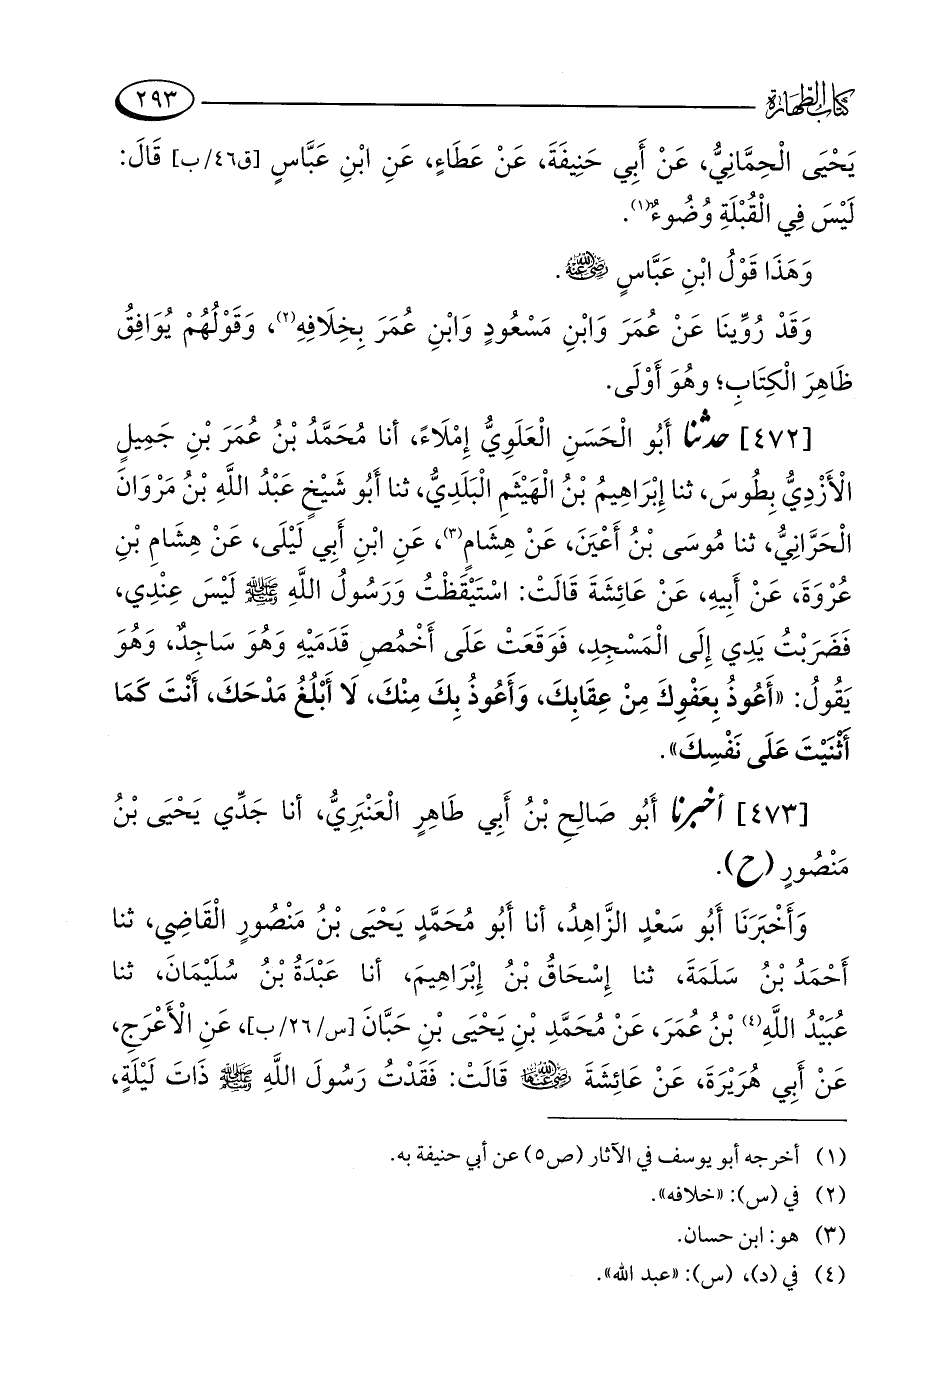 كتاب الطهارة ٢٩٣
يَحْيَى الْحِمَّانِيُّ، عَنْ أَبِي حَنِيفَةَ، عَنْ عَطَاءٍ، عَنِ ابْنِ عَبَّاسٍ [ق٤٦/ب] قَالَ:
لَيْسَ فِي الْقُبْلَةِ وُضُوءٌ(١).
وَهَذَا قَوْلُ ابْنِ عَبَّاسٍ رضي الله عنه.
وَقَدْ رُوِّينَا عَنْ عُمَرَ وَابْنِ مَسْعُودٍ وَابْنِ عُمَرَ بِخِلَافِهِ(٢)، وَقَوْلُهُمْ يُوَافِقُ
ظَاهِرَ الْكِتَابِ؛ وهُوَ أَوْلَى.
[٤٧٢] حدثنا أَبُو الْحَسَنِ الْعَلَوِيُّ إِمْلَاءً، أنا مُحَمَّدُ بْنُ عُمَرَ بْنِ جَمِيلٍ
الْأَزْدِيُّ بِطُوسَ، ثنا إِبْرَاهِيمُ بْنُ الْهَيْثَمِ الْبَلَدِيُّ، ثنا أَبُو شَيْخٍ عَبْدُ اللَّهِ بْنُ مَرْوَانَ
الْحَرَّانِيُّ، ثنا مُوسَى بْنُ أَعْيَنَ، عَنْ هِشَامٍ(٣)، عَنِ ابْنِ أَبِي لَيْلَى، عَنْ هِشَامِ بْنِ
عُرْوَةَ، عَنْ أَبِيهِ، عَنْ عَائِشَةَ قَالَتْ: اسْتَيْقَظْتُ وَرَسُولُ اللَّهِ ﷺ لَيْسَ عِنْدِي،
فَضَرَبْتُ يَدِي إِلَى الْمَسْجِدِ، فَوَقَعَتْ عَلَى أَخْمُصِ قَدَمَيْهِ وَهُوَ سَاجِدٌ، وَهُوَ
يَقُولُ: «أَعُوذُ بِعَفْوِكَ مِنْ عِقَابِكَ، وَأَعُوذُ بِكَ مِنْكَ، لَا أَبْلُغُ مَدْحَكَ، أَنْتَ كَمَا
أَثْنَيْتَ عَلَى نَفْسِكَ».
[٤٧٣] أخبرنا أَبُو صَالِحِ بْنُ أَبِي طَاهِرٍ الْعَنْبَرِيُّ، أنا جَدِّي يَحْيَى بْنُ
مَنْصُورٍ (ح).
وَأَخْبَرَنَا أَبُو سَعْدٍ الزَّاهِدُ، أنا أَبُو مُحَمَّدٍ يَحْيَى بْنُ مَنْصُورٍ الْقَاضِي، ثنا
أَحْمَدُ بْنُ سَلَمَةَ، ثنا إِسْحَاقُ بْنُ إِبْرَاهِيمَ، أنا عَبْدَةُ بْنُ سُلَيْمَانَ، ثنا
عُبَيْدُ اللَّهِ(٤) بْنُ عُمَرَ، عَنْ مُحَمَّدِ بْنِ يَحْيَى بْنِ حَبَّانَ [س/٢٦/ب]، عَنِ الْأَعْرَجِ،
عَنْ أَبِي هُرَيْرَةَ، عَنْ عَائِشَةَ رضي الله عنها قَالَتْ: فَقَدْتُ رَسُولَ اللَّهِ ﷺ ذَاتَ لَيْلَةٍ،
(١) أخرجه أبو يوسف في الآثار (ص٥) عن أبي حنيفة به.
(٢) في (س): «خلافه».
(٣) هو: ابن حسان.
(٤) في (د)، (س): «عبد الله».